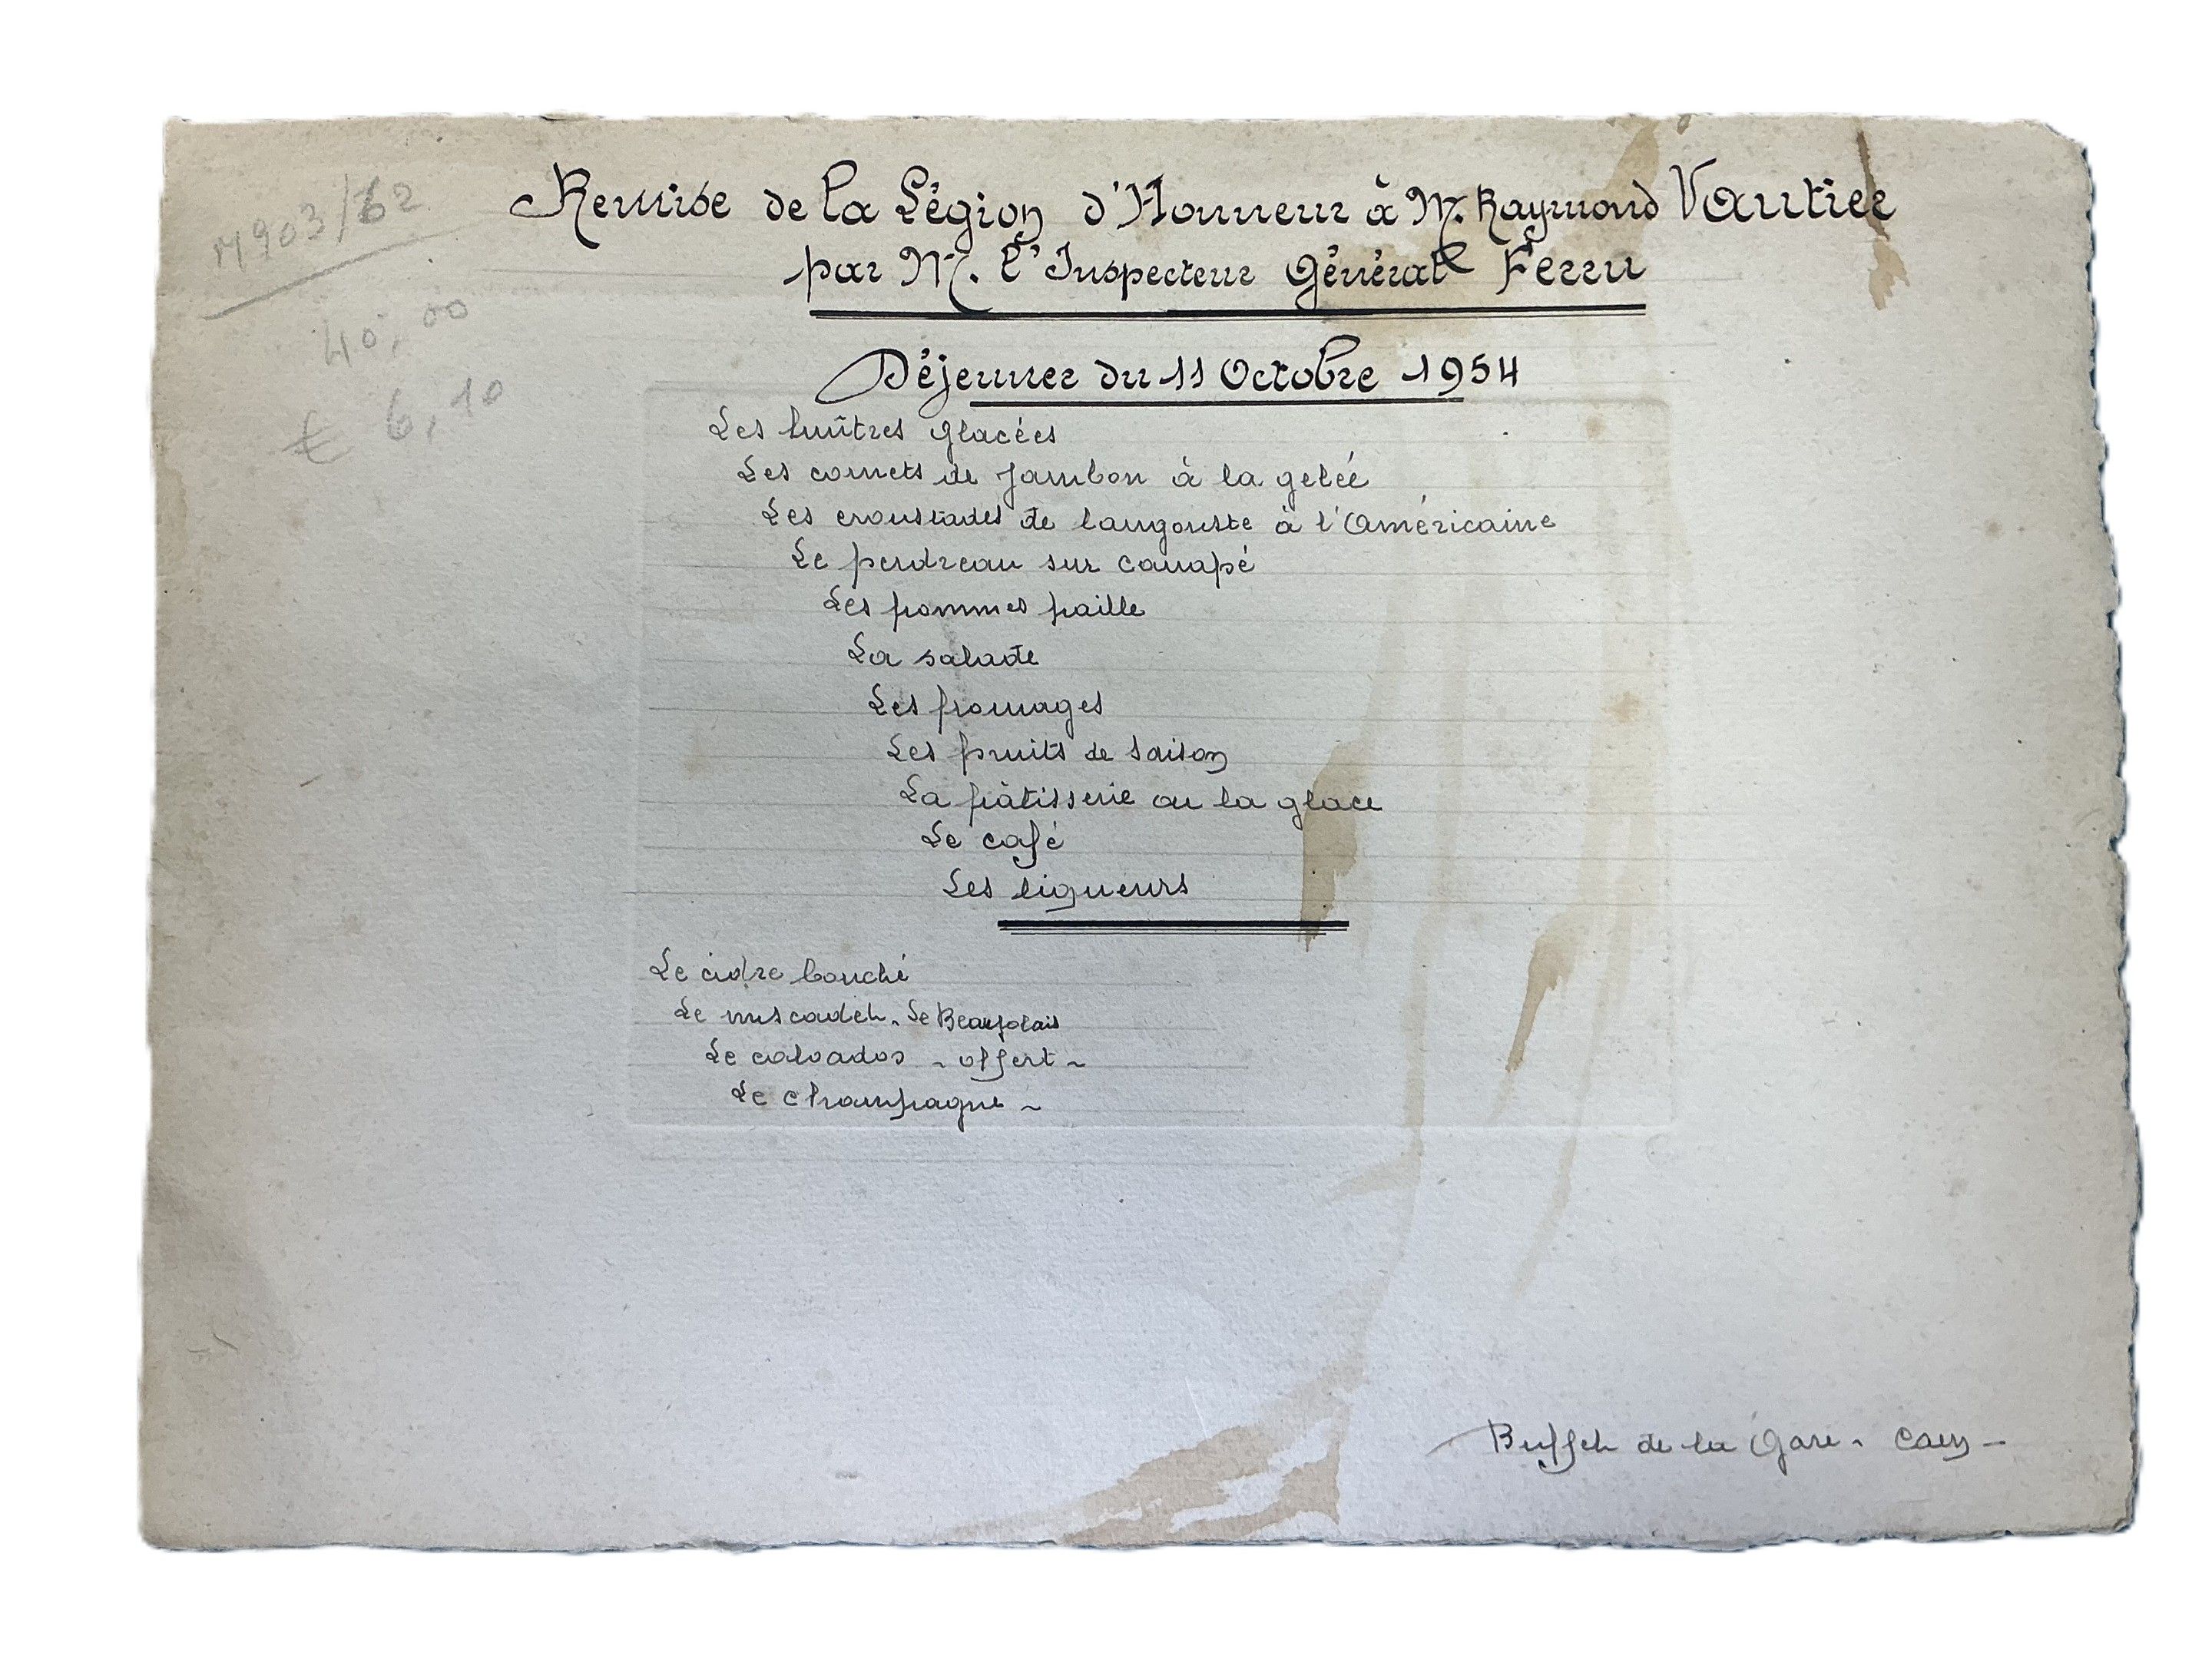 M903/62
40,00
€ 6,10
Remise de la Légion d'Honneur à M. Raymond Vautier
par M. l'Inspecteur Général Ferru
Déjeuner du 11 Octobre 1954
Les huîtres glacées
Les cornets de jambon à la gelée
Les croustades de langouste à l'Américaine
Le perdreau sur canapé
Les pommes paille
La salade
Les fromages
Les fruits de saison
La pâtisserie ou la glace
Le café
Les liqueurs
Le cidre bouché
Le muscadet - Le Beaujolais
Le calvados - offert -
Le champagne -
Buffet de la Gare - Caen -